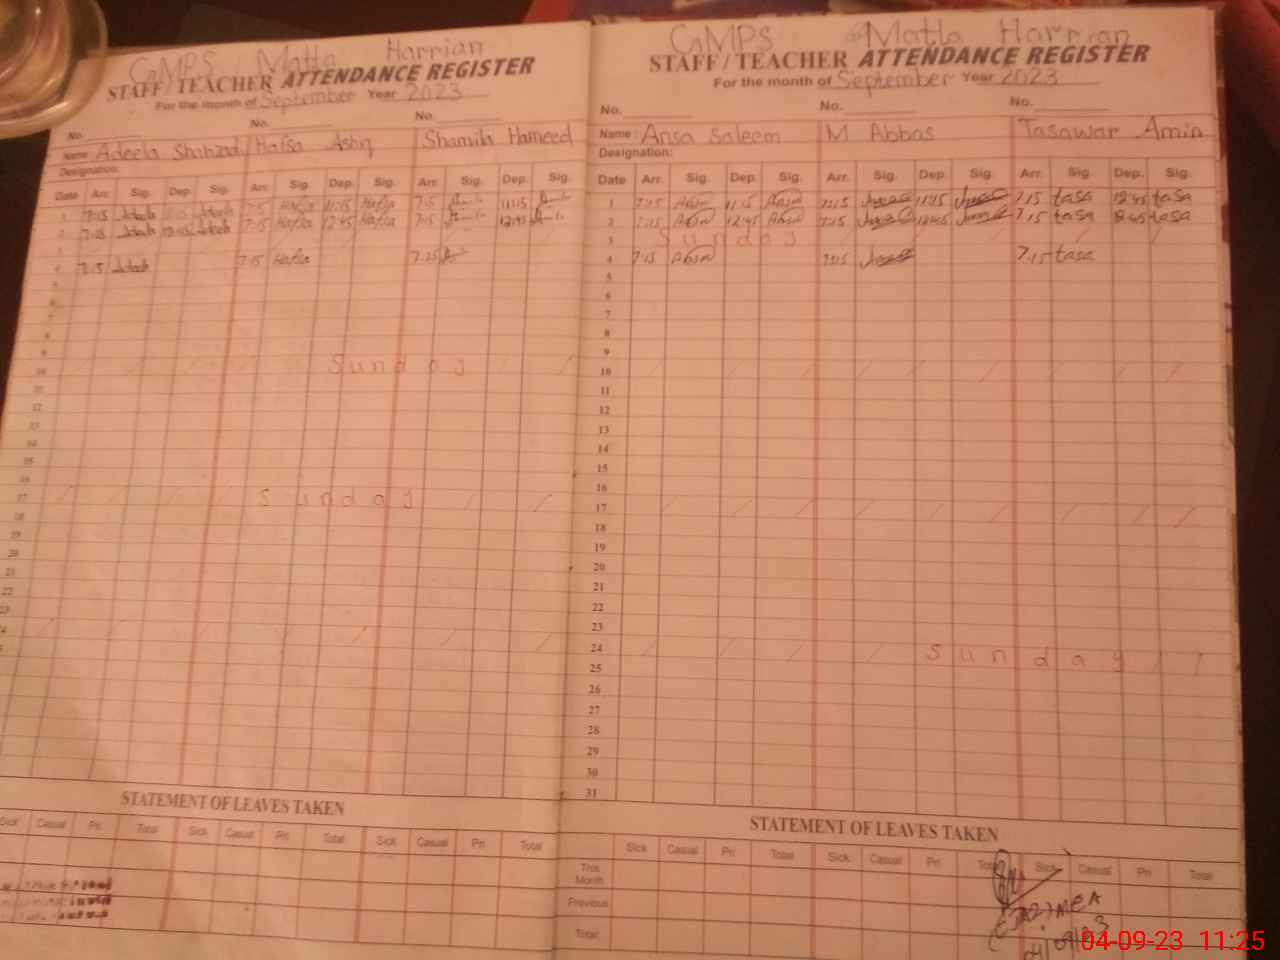 GMPS Matla Harrian
STAFF / TEACHER ATTENDANCE REGISTER
For the month of September Year 2023
No. No. No.
Name Adeela Shahzad Hafsa Ashiq Shamila Hameed
Designation:
Date Arr. Sig. Dep. Sig. Arr. Sig. Dep. Sig. Arr. Sig. Dep. Sig.
1 7:15 Adeela Adeela 7:15 Hafsa 11:15 Hafsa 7:15 11:15
2 7:15 Adeela 12:45 Adeela 7:15 Hafsa 12:45 Hafsa 7:15 12:45
4 7:15 Adeela 7:15 Hafsa 7:25
5
6
7
8
9
10 Sunday
11
12
13
14
15
16
17 Sunday
18
19
20
21
22
23
24
STATEMENT OF LEAVES TAKEN
Sick Casual Pri Total Sick Casual Pri Total Sick Casual Pri Total
GMPS Matla Harrian
STAFF / TEACHER ATTENDANCE REGISTER
For the month of September Year 2023
No. No. No.
Name : Ansa Saleem M Abbas Tasawar Amin
Designation:
Date Arr. Sig. Dep. Sig. Arr. Sig. Dep. Sig. Arr. Sig. Dep. Sig.
1 7:15 11:15 7:15 11:15 7:15 tasa 12:45 tasa
2 7:15 12:45 7:15 12:45 7:15 tasa tasa
3 Sunday
4 7:15 7:15 7:15 tasa
5
6
7
8
9
10
11
12
13
14
15
16
17
18
19
20
21
22
23
24 Sunday
25
26
27
28
29
30
31
STATEMENT OF LEAVES TAKEN
Sick Casual Pri Total Sick Casual Pri Total Sick Casual Pri Total
This Month
Previous
Total
MEA
04-09-23 11:25